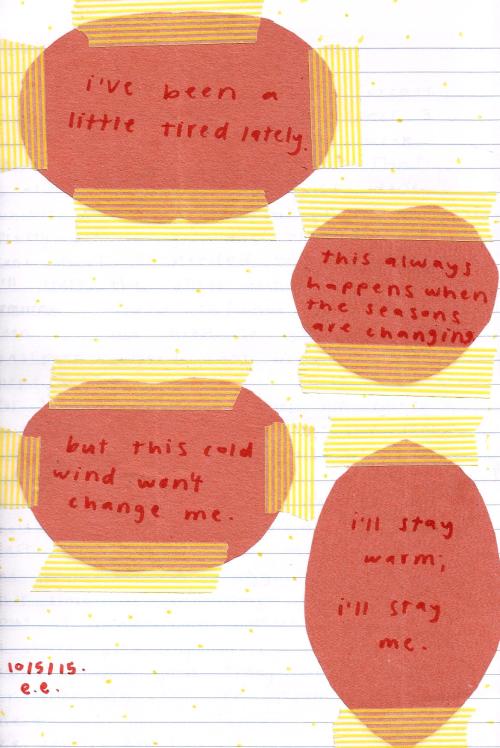 i've been a
little tired lately.
this always
happens when
the seasons
are changing
but this cold
wind won't
change me.
i'll stay
warm;
i'll stay
me.
10/5/15.
e.e.